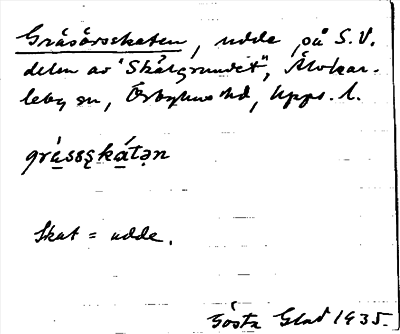 Gråsörsskaten, udde på S.V.
delen av "Skålgrundet", Älvkar-
leby sn, Örbyhus hd, Upps. l.
grássskátən
Skat = udde.
Gösta Glad 1935.